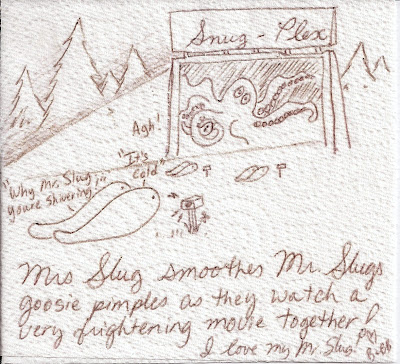 Snug-Plex
Agh!
"It's
cold"
"Why Mr. Slug
you're shivering!"
Mrs Slug smoothes Mr. Slugs
goosie pimples as they watch a
very frightening movie together
I love my Mr. Slug.